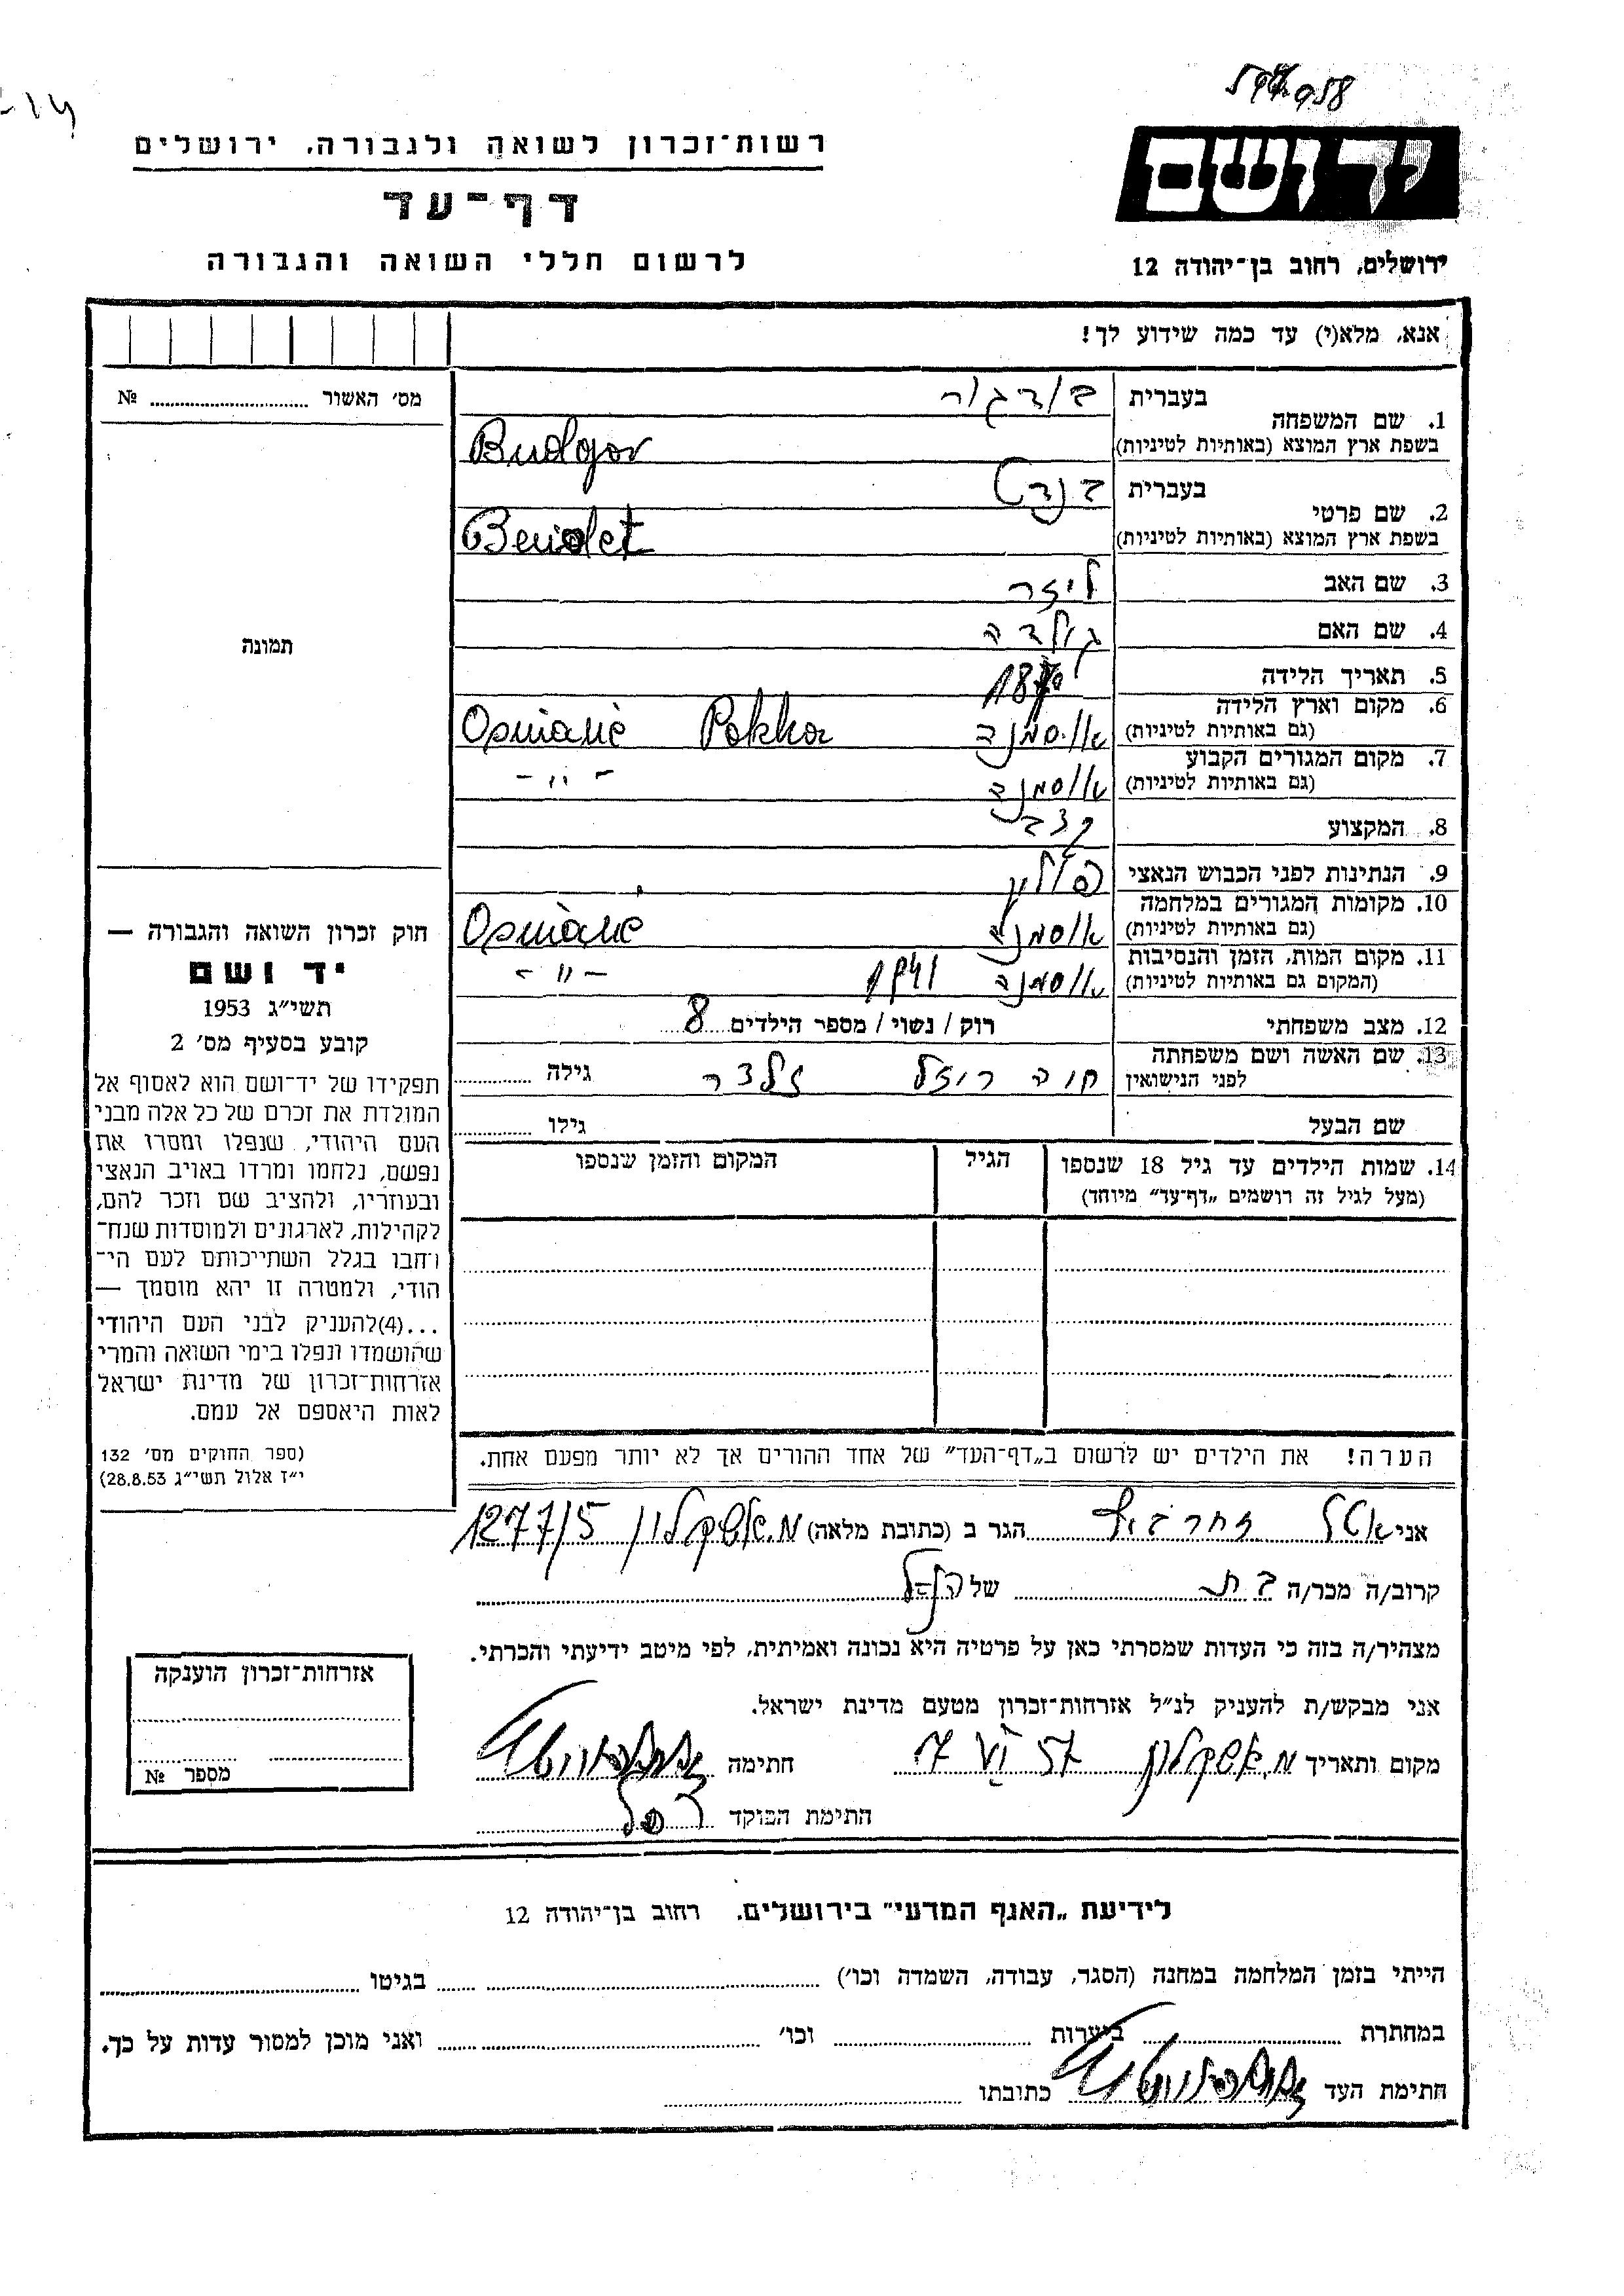 רשות-זכרון לשואה ולגבורה, ירושלים
דף-עד
לרשום חללי השואה והגבורה
יד ושם
ירושלים, רחוב בן-יהודה 12
אנא, מלא(י) עד כמה שידוע לך!
מס׳ האשור № 
תמונה
1. שם המשפחה
בעברית בודגור
בשפת ארץ המוצא (באותיות לטיניות) Budgor
2. שם פרטי
בעברית בנדט
בשפת ארץ המוצא (באותיות לטיניות)
3. שם האב ליזר
4. שם האם גולדה
5. תאריך הלידה
6. מקום וארץ הלידה
(גם באותיות לטיניות) Osmiane
7. מקום המגורים הקבוע
(גם באותיות לטיניות) - " -
8. המקצוע קצב
9. הנתינות לפני הכבוש הנאצי פולין
10. מקומות המגורים במלחמה
(גם באותיות לטיניות) Osmiane
11. מקום המות, הזמן והנסיבות
(המקום גם באותיות לטיניות) 1941 - " -
12. מצב משפחתי רוק / נשוי / מספר הילדים 8
13. שם האשה ושם משפחתה
לפני הנישואין חוה רוזל זלצר גילה
שם הבעל גילו
14. שמות הילדים עד גיל 18 שנספו הגיל המקום והזמן שנספו
(מעל לגיל זה רושמים „דף-עד״ מיוחד)
חוק זכרון השואה והגבורה —
יד ושם
תשי״ג 1953
קובע בסעיף מס׳ 2
תפקידו של יד-ושם הוא לאסוף אל
המולדת את זכרם של כל אלה מבני
העם היהודי, שנפלו ומסרו את
נפשם, נלחמו ומרדו באויב הנאצי
ובעוזריו, ולהציב שם וזכר להם,
לקהילות, לארגונים ולמוסדות שנח-
רחבו בגלל השתייכותם לעם הי-
הודי, ולמטרה זו יהא מוסמך —
...(4)להעניק לבני העם היהודי
שהושמדו ונפלו בימי השואה והמרי
אזרחות-זכרון של מדינת ישראל
לאות היאספם אל עמם.
(ספר החוקים מס׳ 132
י״ז אלול תשי״ג 28.8.53)
הערה! את הילדים יש לרשום ב„דף-העד״ של אחד ההורים אך לא יותר מפעם אחת.
אני הגר ב (כתובת מלאה) מ.אשקלון 1277/5
קרוב/ה מכר/ה בת של הנ״ל
מצהיר/ה בזה כי העדות שמסרתי כאן על פרטיה היא נכונה ואמיתית, לפי מיטב ידיעתי והכרתי.
אני מבקש/ת להעניק לנ״ל אזרחות-זכרון מטעם מדינת ישראל.
מקום ותאריך מ.אשקלון 17 VI 57 חתימה
חתימת הפוקד
אזרחות-זכרון הוענקה
מספר №
לידיעת „האגף המדעי״ בירושלים, רחוב בן-יהודה 12
הייתי בזמן המלחמה במחנה (הסגר, עבודה, השמדה וכו׳) בגיטו
במחתרת ביערות וכו׳ ואני מוכן למסור עדות על כך.
חתימת העד כתובתו